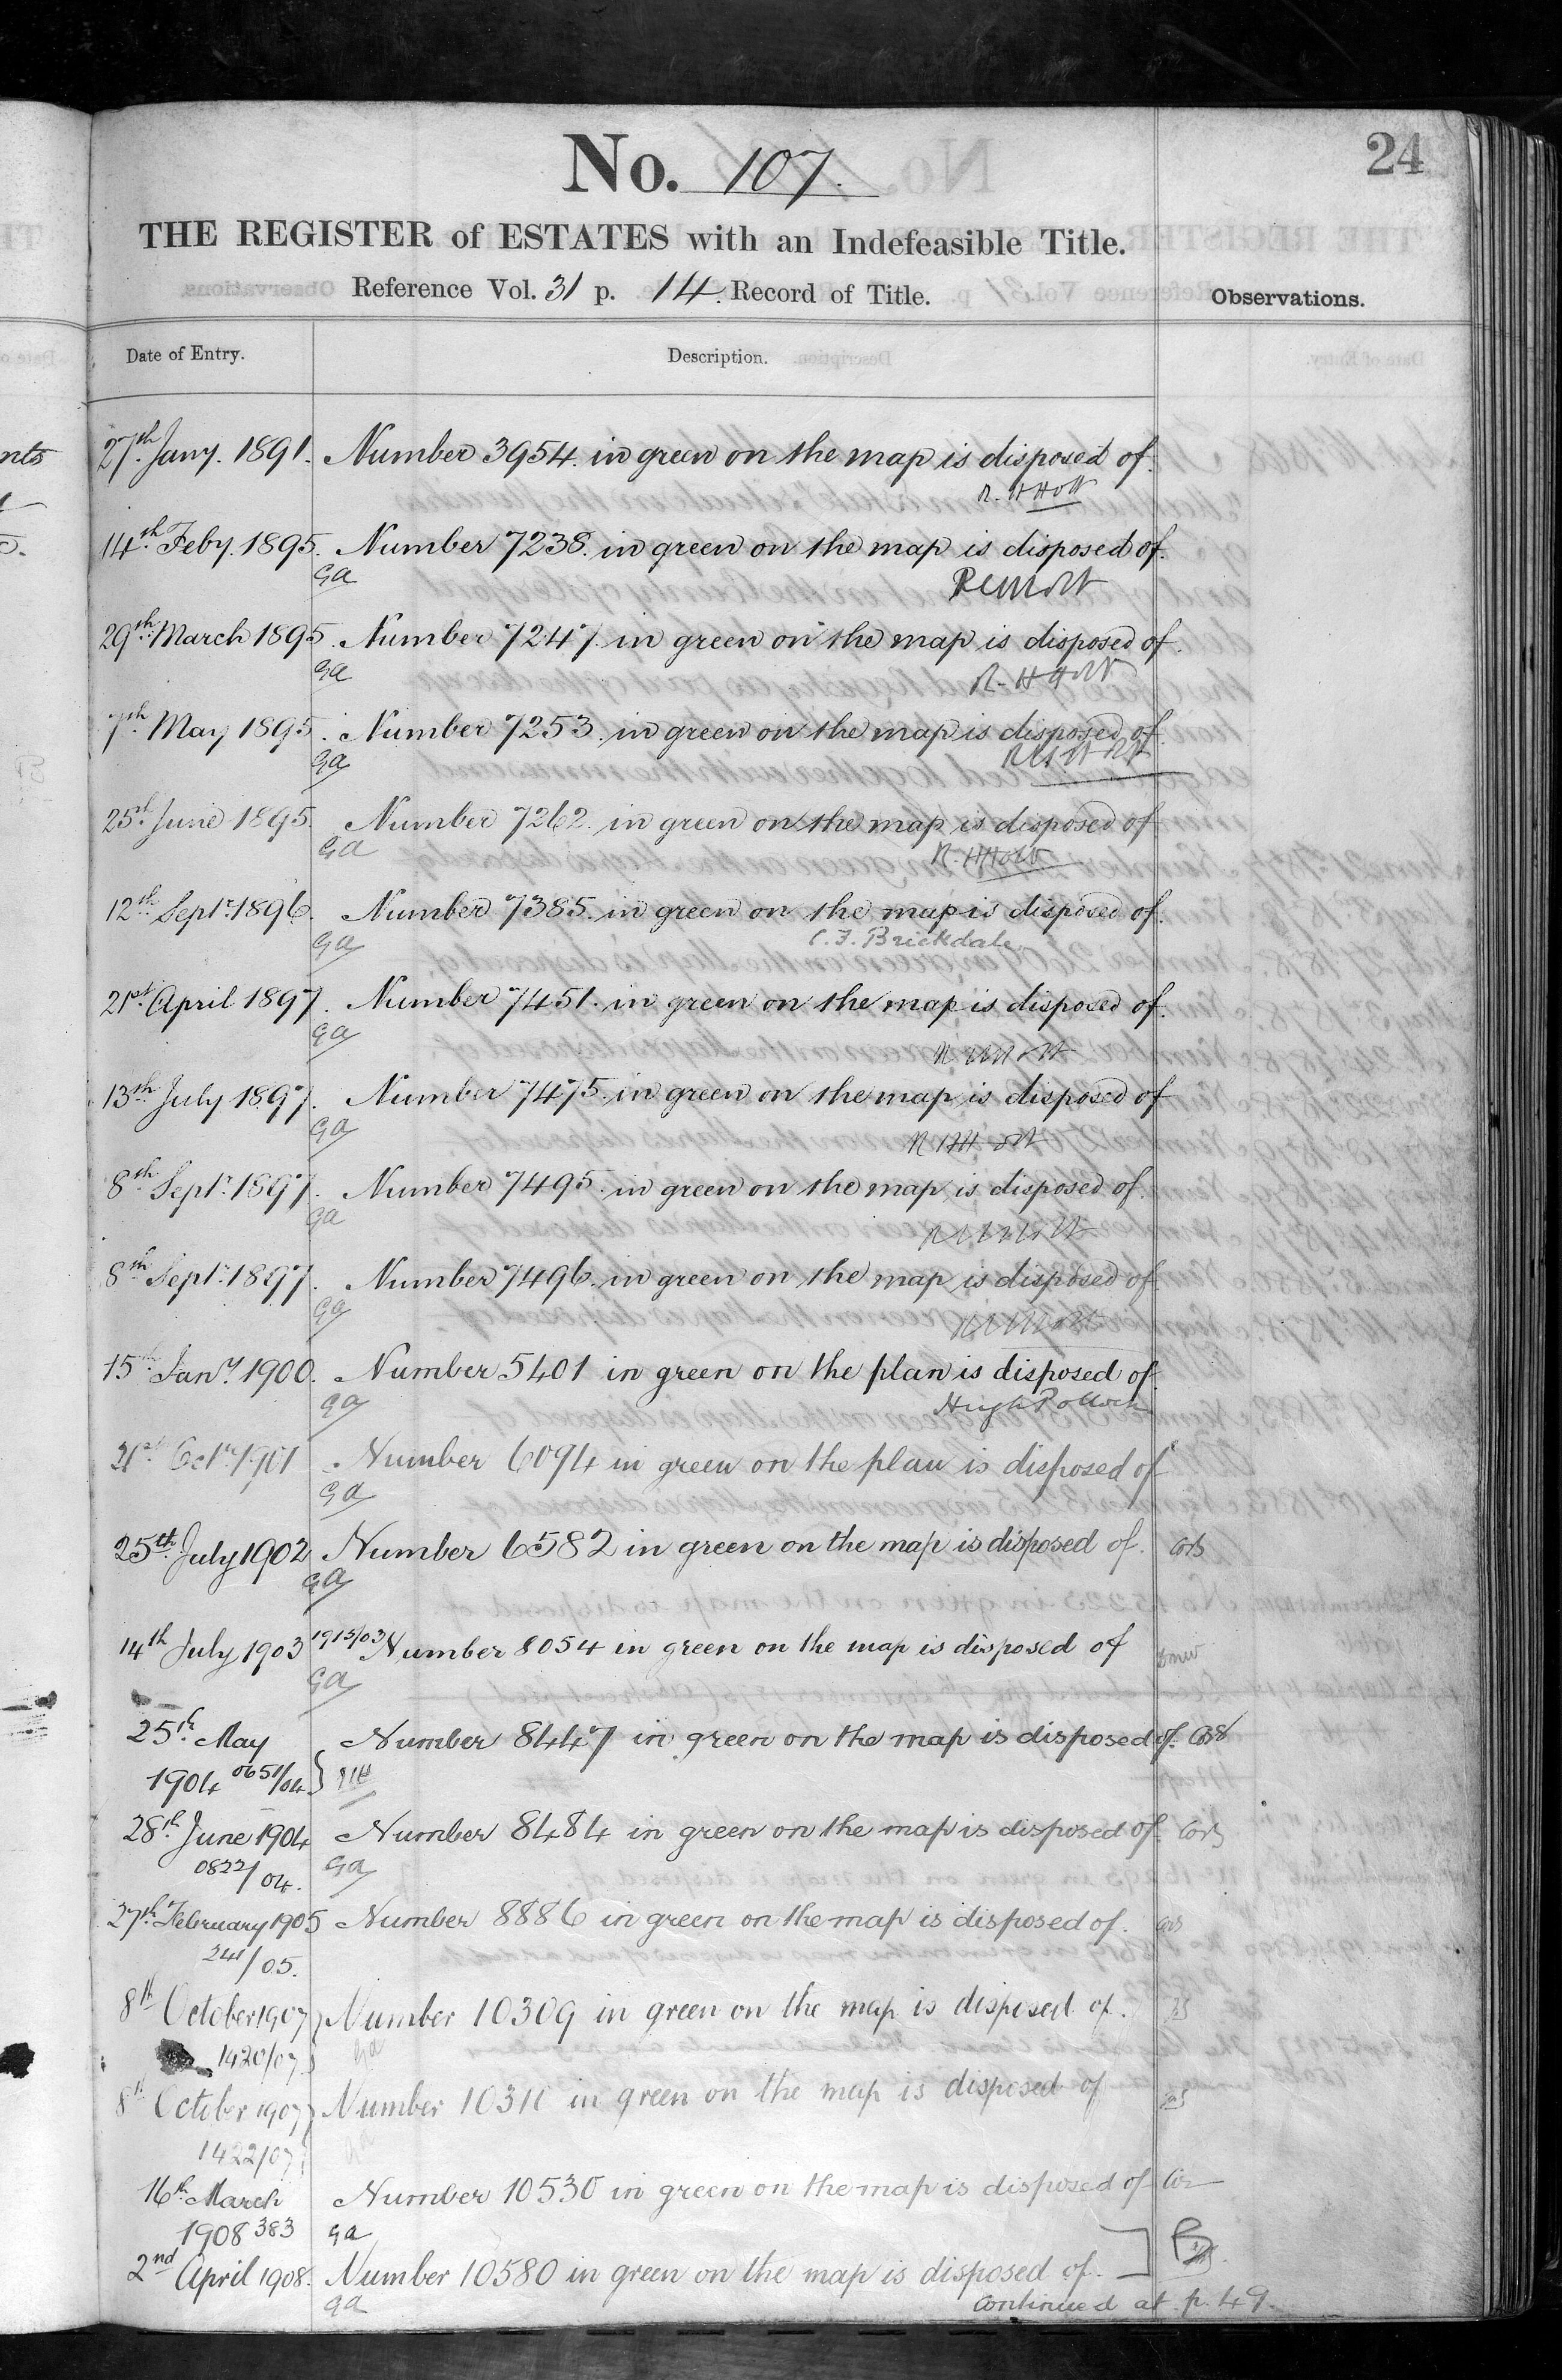 24
No. 107.
THE REGISTER of ESTATES with an Indefeasible Title.
Reference Vol. 31 p. 14. Record of Title.
Observations.
Date of Entry. Description.
27th Jany. 1891. Number 3954 in green on the map is disposed of.
R. H Holt
14th Feby. 1895. Number 7238 in green on the map is disposed of.
GA
29th March 1895. Number 7247 in green on the map is disposed of.
GA
7th May 1895. Number 7253 in green on the map is disposed of.
GA
25th June 1895. Number 7262 in green on the map is disposed of
GA R. H Holt
12th Septr. 1896. Number 7385 in green on the map is disposed of.
GA C. F. Brickdale
21st April 1897. Number 7451 in green on the map is disposed of.
GA
13th July 1897. Number 7475 in green on the map is disposed of
GA
8th Septr. 1897. Number 7495 in green on the map is disposed of.
GA
8th Septr. 1897. Number 7496 in green on the map is disposed of
GA
15th Jany. 1900. Number 5401 in green on the plan is disposed of.
GA Hugh Pollock
21st Octr. 1901 Number 6094 in green on the plan is disposed of
GA
25th July 1902 Number 6582 in green on the map is disposed of.
GA
14th July 1903 1915/03 Number 8054 in green on the map is disposed of
GA
25th May Number 8447 in green on the map is disposed of.
1904 0651/04
28th June 1904 Number 8484 in green on the map is disposed of.
0822/04. GA
27th February 1905 Number 8886 in green on the map is disposed of.
241/05.
8th October 1907 Number 10309 in green on the map is disposed of.
1420/07 GA
8th October 1907 Number 10310 in green on the map is disposed of
1422/07 GA
16th March Number 10530 in green on the map is disposed of
1908 383 GA
2nd April 1908. Number 10580 in green on the map is disposed of.
GA Continued at p. 49.